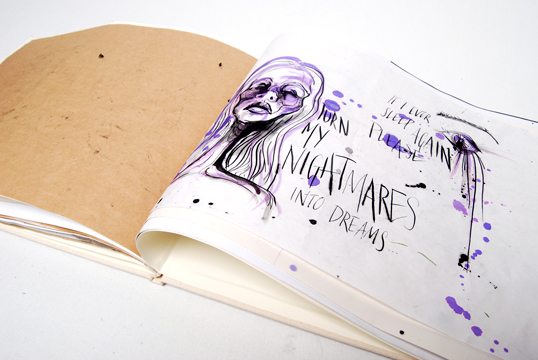 IF I EVER
SLEEP AGAIN
TURN PLEASE
MY
NIGHTMARES
INTO DREAMS